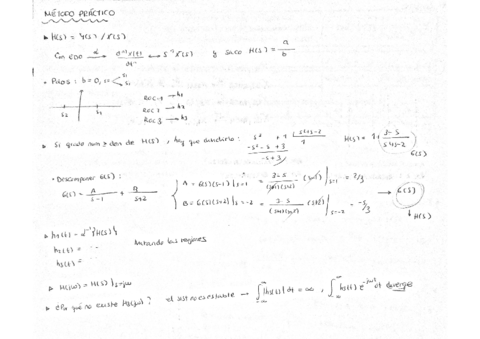 MÉTODO PRÁCTICO
▸ H(s) = Y(s) / X(s)
Con EDO d^n x(t) / dt^n ↔ s^n X(s) y saco H(s) = a / b
• Polos: b = 0, s = < s1 s2
ROC 1 → h1
ROC 2 → h2
ROC 3 → h3
s2 s1
▸ Si grado num ≥ den de H(s), hay que dividir: s² + 1 | s²+s-2
-s² - s + 3 1
-s + 3
H(s) = 1 + 3-s / s²+s-2
G(s)
• Descomponer G(s):
G(s) = A / s-1 + B / s+2
A = G(s)(s-1)|s=1 = 3-s / (s-1)(s+2) (s-1)|s=1 = 2/3
B = G(s)(s+2)|s=-2 = 3-s / (s-1)(s+2) (s+2)|s=-2 = -5/3
→ G(s)
↓ H(s)
▸ h1(t) = L⁻¹{H(s)}
h2(t) =
h3(t) =
las regiones
▸ H(jω) = H(s)|s=jω
▸ ¿Por qué no existe H3(jω)? el sist no es estable → ∫ |h3(t)| dt = ∞, ∫ h3(t) e^-jωt dt diverge